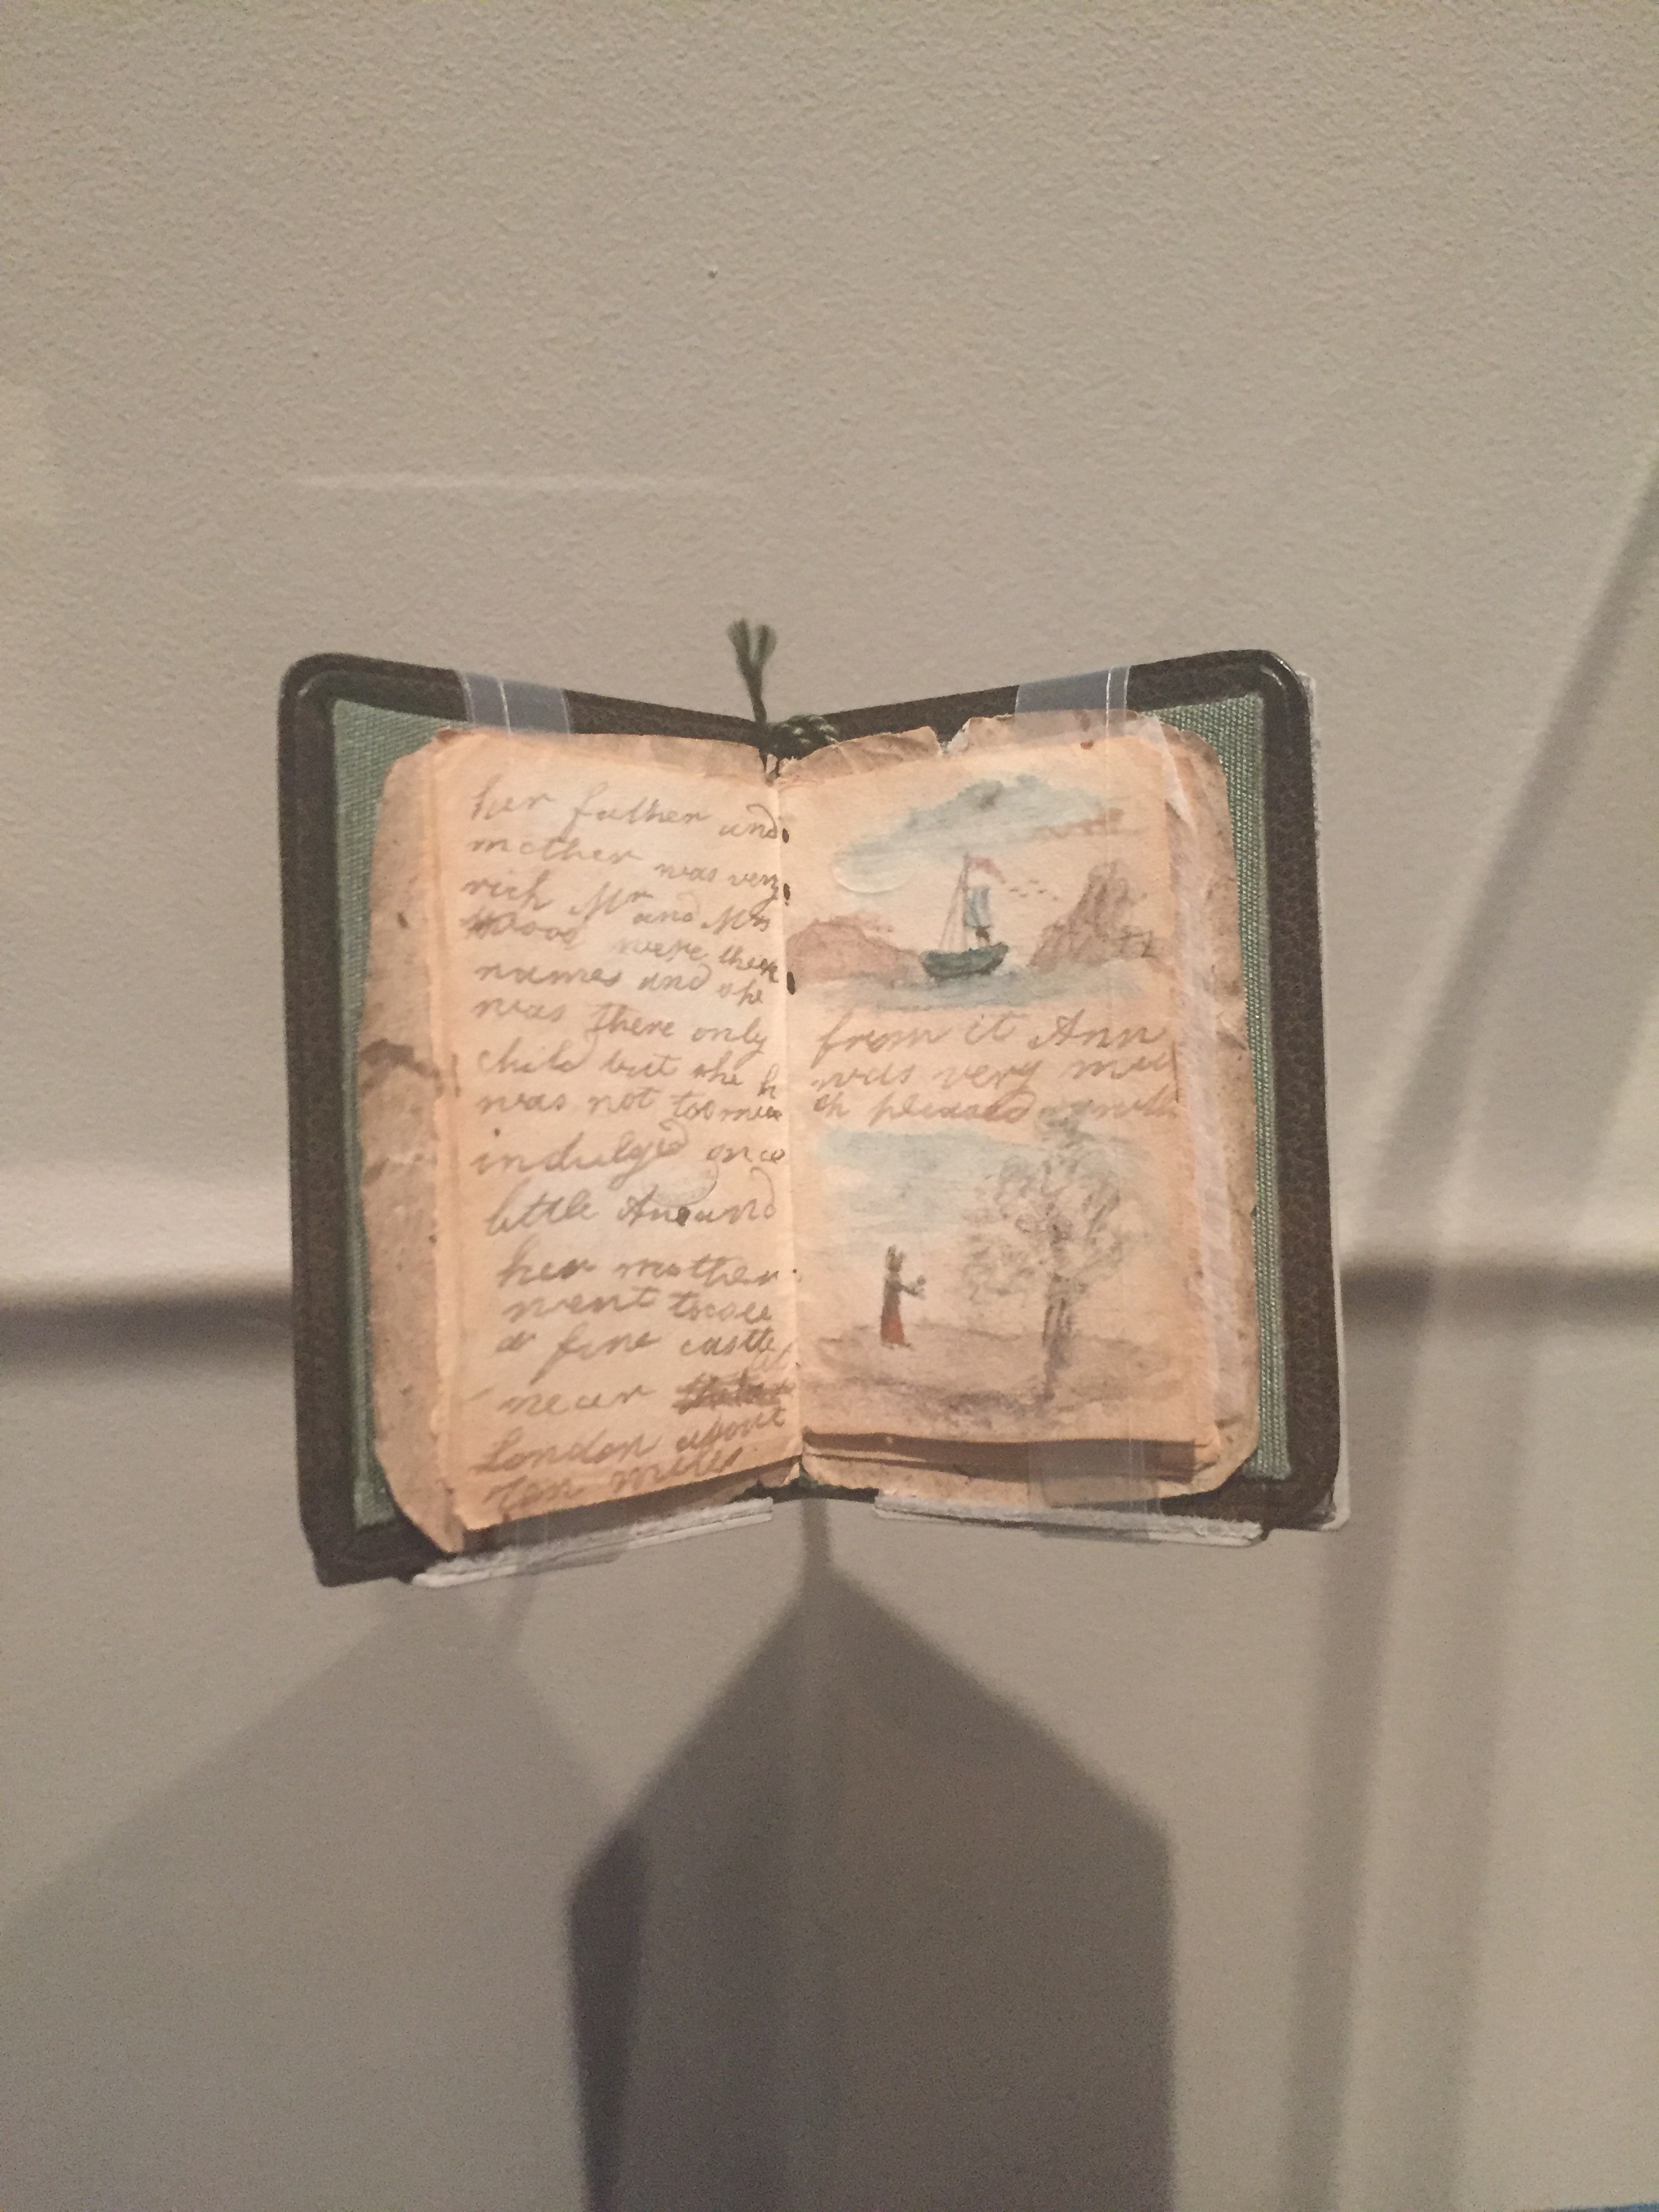 her father and
mother was very
rich Mr and Mrs
Wood were there
names and she
was there only
child but she
was not to mu
indulged once
little Ane and
her mother
went to see
a fine castle
near
London about
ten miles
from it Ann
was very mu
ch pleased with